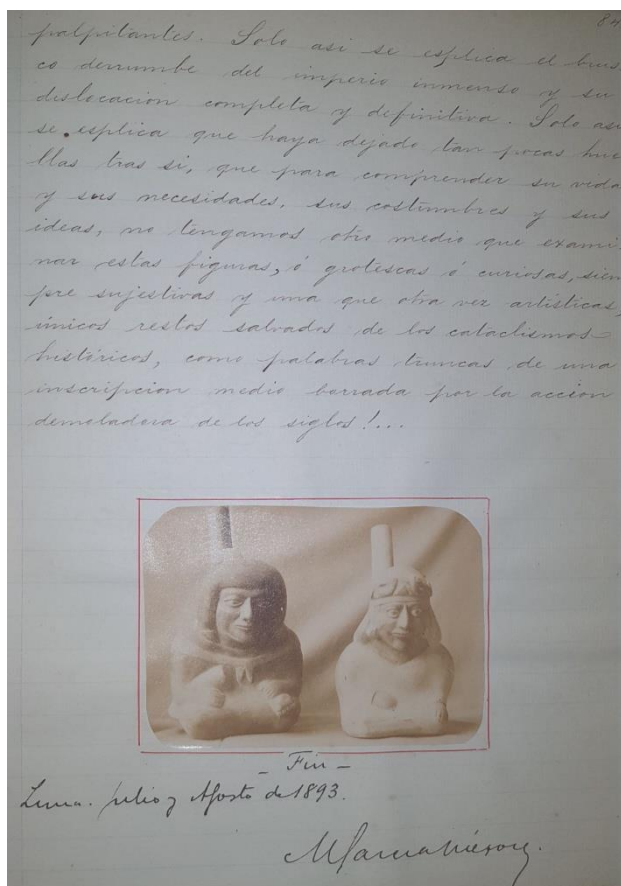 84
palpitantes. Solo asi se esplica el brus
co derrumbe del imperio inmenso y su
dislocacion completa y definitiva. Solo asi
se esplica que haya dejado tan pocas hue
llas tras si, que para comprender su vida
y sus necesidades, sus costumbres y sus
ideas, no tengamos otro medio que exami
nar estas figuras, ó grotescas ó curiosas, siem
pre sujestivas y una que otra vez artísticas,
únicos restos salvados de los cataclismos
históricos, como palabras truncas de una
inscripcion medio borrada por la accion
demoladora de los siglos!...
- Fin -
Lima. Julio y Agosto de 1893.